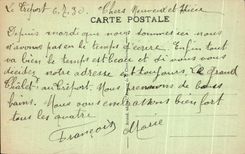 Le Tréport 6.7.30. Chers Neveux et Nièce
CARTE POSTALE
Depuis mardi que nous sommes ici nous
n'avons pas eu le temps d'écrire. Enfin tout
va bien le temps est beau et si vous vous
décidez notre adresse est toujours Le Grand
Chalet au Tréport. Nous prenons de bons
bains. Nous vous embrassons bien fort
tous les quatre.
François Marie